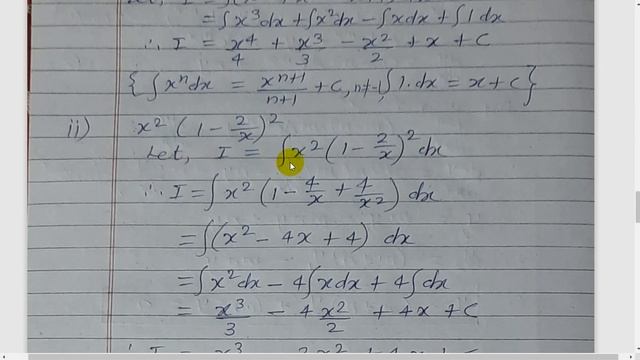 = ∫x³dx + ∫x²dx - ∫xdx + ∫1dx
∴ I = x⁴/4 + x³/3 - x²/2 + x + C
{∫xⁿdx = xⁿ⁺¹/n+1 + C, n≠-1, ∫1.dx = x + C}
ii) x² (1 - 2/x)²
Let, I = ∫x² (1 - 2/x)² dx
∴ I = ∫ x² (1 - 4/x + 4/x²) dx
= ∫(x² - 4x + 4) dx
= ∫x²dx - 4∫xdx + 4∫dx
= x³/3 - 4x²/2 + 4x + C